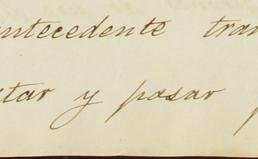 antecedente tran
tar y pasar